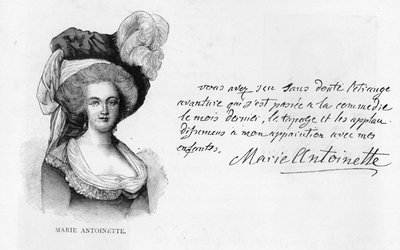 vous avez sçu sans doute l'étrange
avanture qui s'est passée a la commedie
le mois dernié, le tapage et les applau
dissements a mon apparution avec mes
enfantes.
Marie Antoinette
MARIE ANTOINETTE.